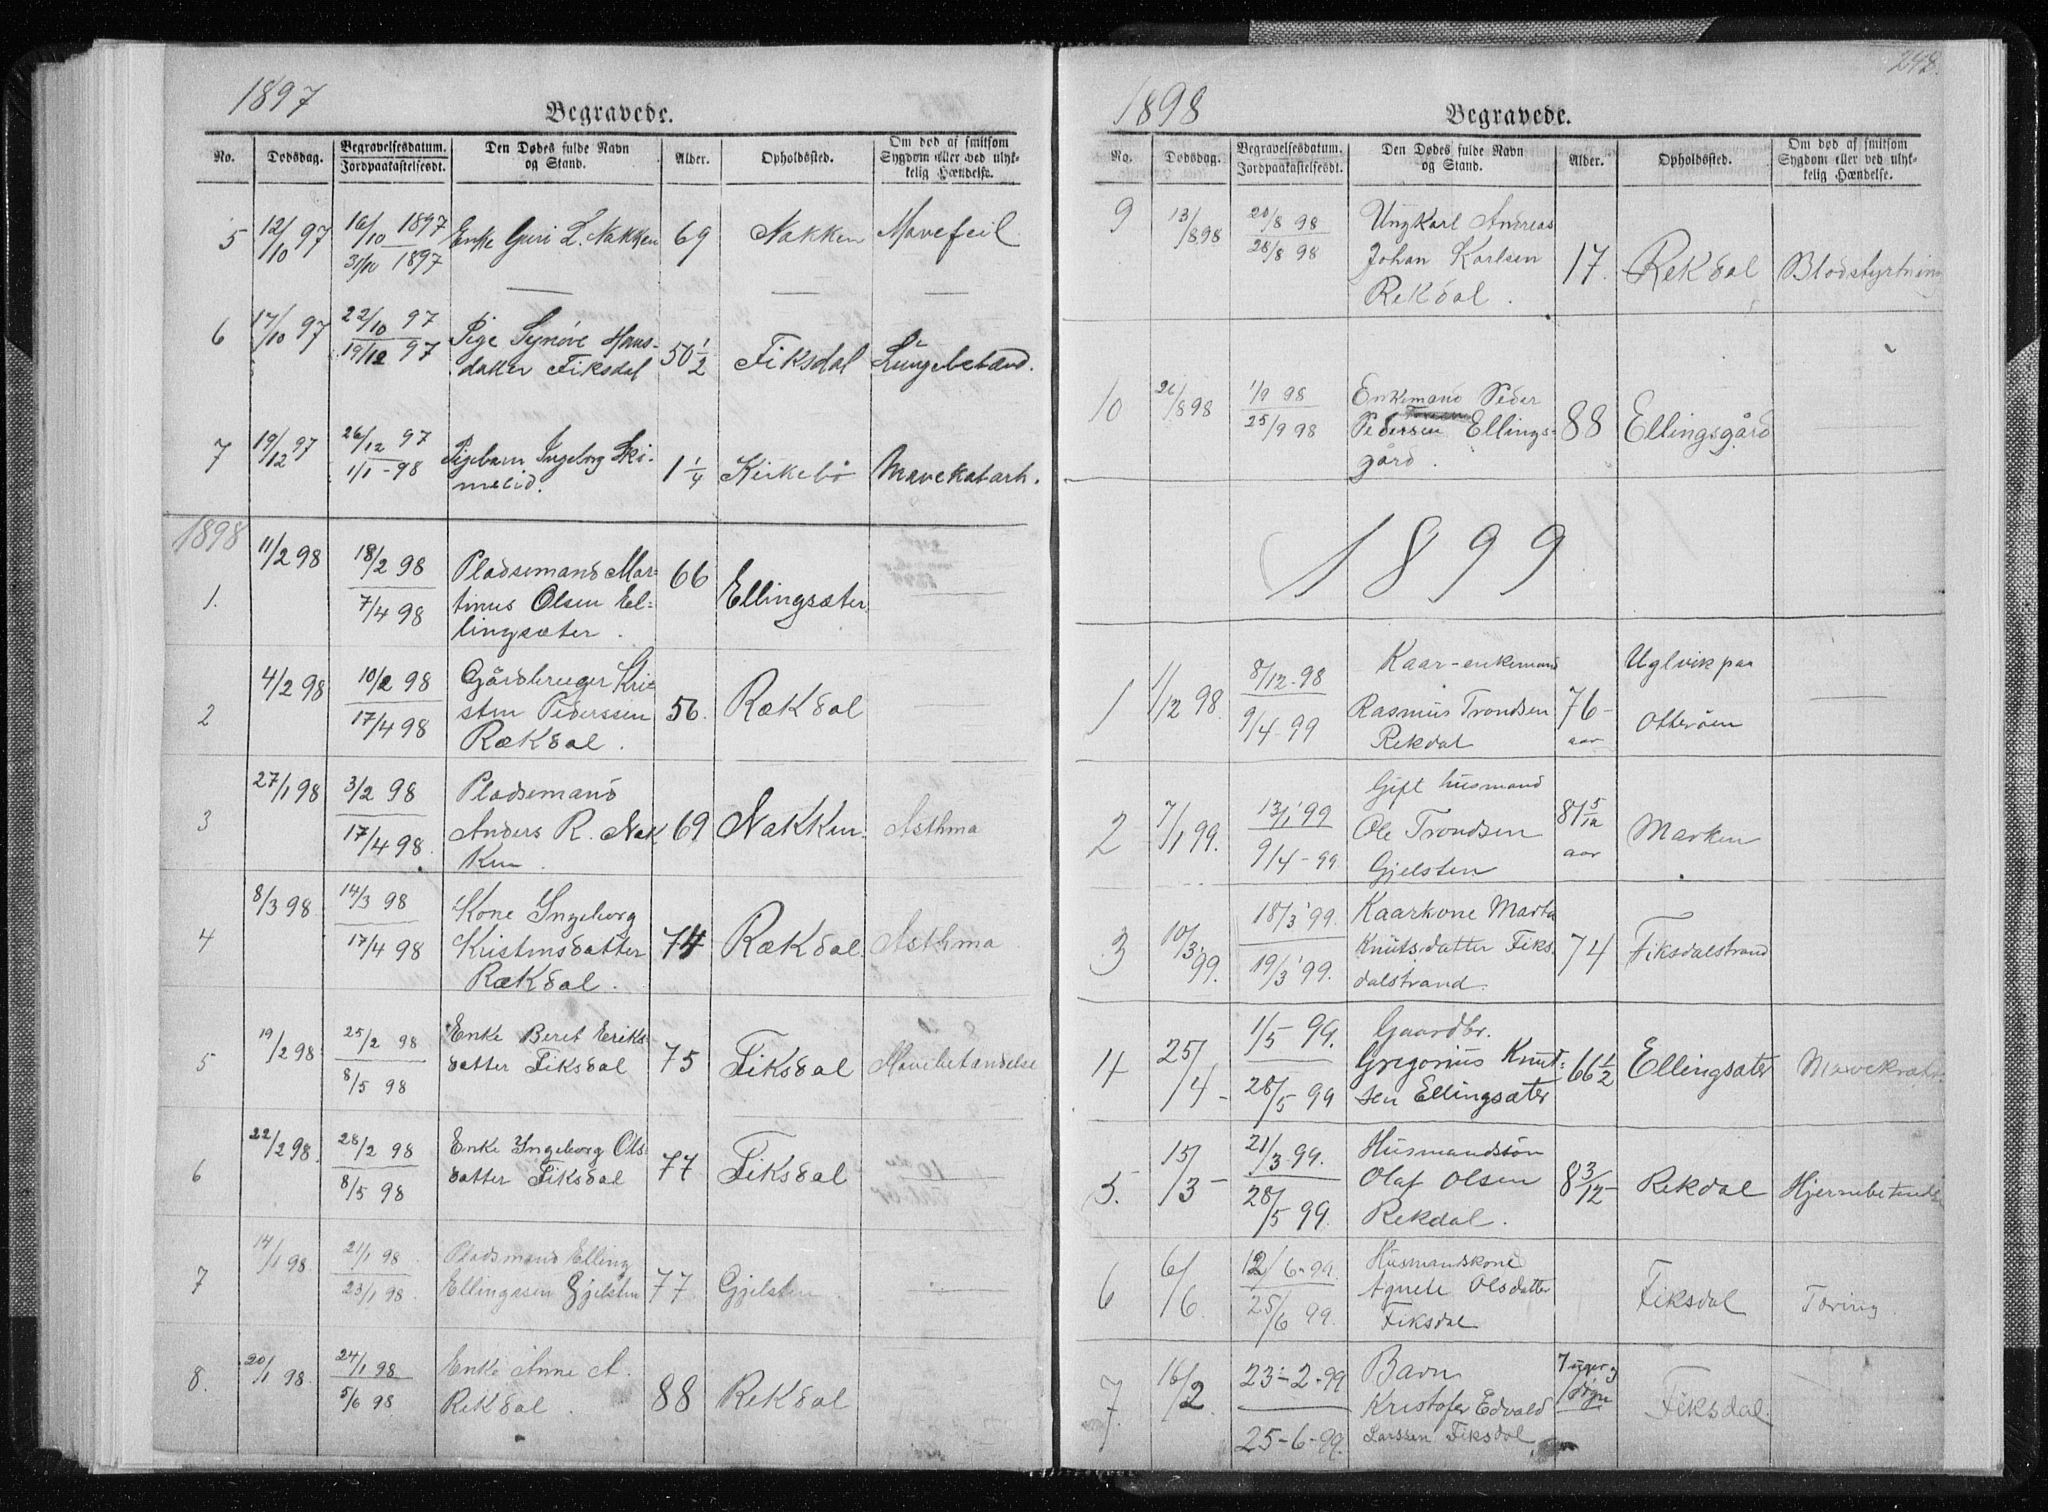 1897
Begravede.
No. Dødsdag. Begravelsesdatum. Jordpaakastelsesdt. Den Dødes fulde Navn og Stand. Alder. Opholdssted. Om død af smitsom Sygdom eller ved ulykkelig Hændelse.
5 12/10 97 16/10 1897 31/10 1897 Enke Guri L. Nakken 69 Nakken Mavefeil
6 17/10 97 22/10 97 19/12 97 Pige Synøve Hans-
datter Fiksdal 50 1/2 Fiksdal Lungebetænd.
7 19/12 97 26/12 97 1/1-98 Pigebarn Ingeborg Ski-
melid. 1 1/4 Kirkebø Mavekatarh.
1898
1. 11/2 98 18/2 98 7/4 98 Pladsemand Mar-
tinus Olsen El-
lingsæter. 66 Ellingsæter
2 4/2 98 10/2 98 17/4 98 Gårdbruger Kri-
sten Pederssen
Rækdal. 56. Rækdal
3 27/1 98 3/2 98 17/4 98. Pladsemand
Anders R. Nak
ken. 69 Nakken. Asthma
4 8/3 98 14/3 98 17/4 98 Kone Ingeborg
Kristensdatter
Rækdal. 74 Rækdal. Asthma
5 19/2 98 25/2 98 8/5 98 Enke Beret Eriks-
datter Fiksdal 75 Fiksdal Mavebetændelse
6 22/2 98. 28/2 98 8/5 98 Enke Ingeborg Ols-
datter Fiksdal 77 Fiksdal
7 14/1 98 21/1 98 23/1 98. Pladsmand Elling
Ellingssen Gjelsten 77 Gjelsten
8. 20/1 98. 24/1 98 5/6 98 Enke Anne A.
Rekdal. 88 Rekdal
1898
Begravede.
248.
No. Dødsdag. Begravelsesdatum. Jordpaakastelsesdt. Den Dødes fulde Navn og Stand. Alder. Opholdssted. Om død af smitsom Sygdom eller ved ulykkelig Hændelse.
9 13/8 98 20/8 98 28/8 98 Ungkarl Andreas
Johan Karlsen
Rekdal. 17. Rekdal Blodstyrtning
10 26/8 98 1/9 98 25/9 98 Enkemand Peder
Pedersen Ellings-
gård. 88 Ellingsgård
1899
1 1/12 98. 8/12-98 9/4-99 Kaar-enkemand
Rasmus Trondsen
Rekdal 76-
aar Uglvik paa
Otterøen
2 7/1 99. 13/1 '99 9/4-99. Gift husmand
Ole Trondsen
Gjelsten 81 5/12
aar Marken
3 10/3 99. 18/3 '99. 19/3 '99. Kaarkone Marta
Knutsdatter Fiks-
dalstrand. 74 Fiksdalstrand
4 25/4- 1/5 99. 28/5 99 Gaardbr.
Gregorius Knut-
sen Ellingsæter 66 1/2 Ellingsæter
5. 15/3- 21/3-99. 28/5 99. Husmandssøn
Olaf Olsen
Rekdal. 8 3/12- Rekdal
6 6/6 12/6-99. 25/6 99. Husmandskone
Agnete Olsdatter
Fiksdal Fiksdal Tæring.
7. 16/2. 23-2-99 25-6-99. Barn
Kristofer Edvald
Larssen Fiksdal 7 uger og
1 døgn Fiksdal.